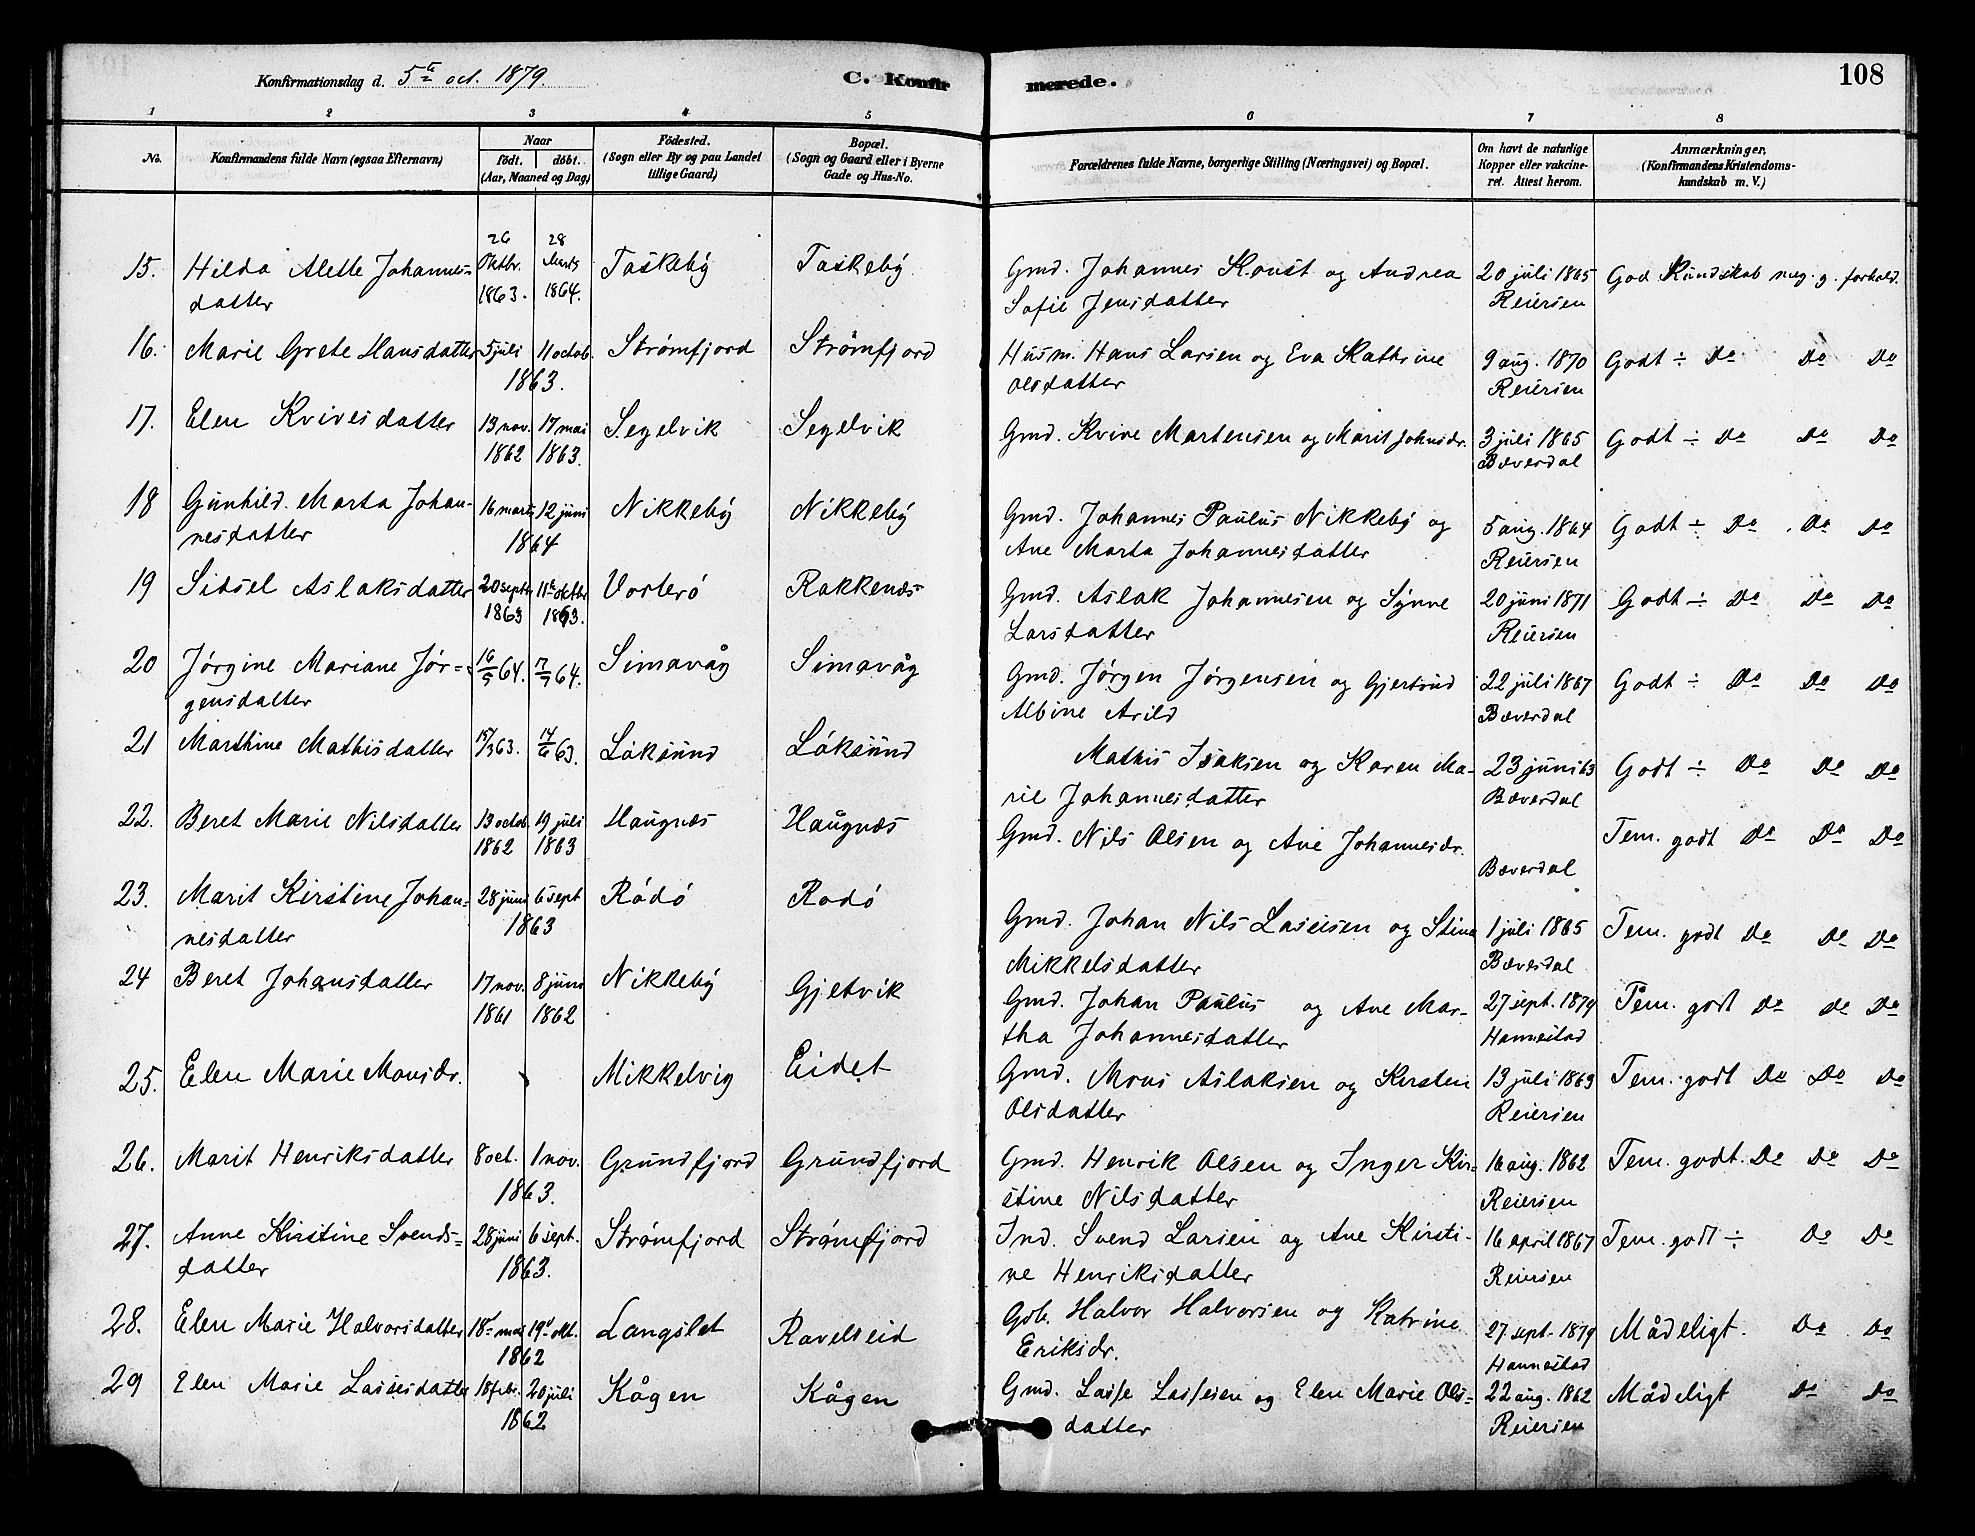 Konfirmationsdag d. 5te oct. 1879.
C. Konfirmerede.
108
1 2 3 4 5 6 7 8
No.
Konfirmandens fulde Navn (ogsaa Efternavn)
Naar
født. døbt.
(Aar, Maaned og Dag)
Födested.
(Sogn eller By og paa Landet
tillige Gaard)
Bopæl.
(Sogn og Gaard eller i Byerne
Gade og Hus-No.
Forældrenes fulde Navne, borgerlige Stilling (Næringsvei) og Bopæl.
Om havt de naturlige
Kopper eller vakcine-
ret. Attest herom.
Anmærkninger,
(Konfirmandens Kristendoms-
kundskab m. V.)
15. Hilda Alette Johannes- 26 Oktbr. 1863. 28 Marts 1864. Taskeby Taskeby Gmd. Johannes Konst og Andrea 20 juli 1865 God Kundskab meg. g. forhold.
datter Sofie Jensdatter Reiersen
16. Marie Grete Hansdatter 5 juli 11 octob. Strømfjord Strømfjord Husm. Hans Larsen og Eva Kathrine 9 aug. 1870 Godt ÷ Do Do Do
1863. Olsdatter Reiersen
17. Elen Kvivesdatter 13 nov. 17 mai Segelvik Segelvik Gmd. Kvive Martensen og Marit Johnsdr. 3 juli 1865 Godt ÷ Do Do Do
1862 1863. Bæverdal
18 Gunhild Marta Johan- 16 marts 12 juni Nikkeby Nikkeby Gmd. Johannes Paulus Nikkeby og 5 aug. 1864 Godt ÷ Do Do Do
nesdatter 1864 Ane Marta Johannesdatter Reiersen
19 Sidsel Aslaksdatter 20 septr 11te oktbr Vorterø Rakkenæs Gmd. Aslak Johannesen og Synne 20 juni 1871 Godt ÷ Do Do Do
1863 1863. Larsdatter Reiersen
20 Jørgine Mariane Jør- 16/5 64. 17/7 64. Simavåg Simavåg Gmd. Jørgen Jørgensen og Gjertrud 22 juli 1867 Godt ÷ Do Do Do
gensdatter Albine Arild Bæverdal
21 Marthine Mathisdatter 15/3 63. 14/6 63. Løksund Løksund Mathis Isaksen og Karen Ma- 23 juni 63 Godt ÷ Do Do Do
rie Johannesdatter Bæverdal
22. Beret Marie Nilsdatter 13 octob. 19 juli Haugnæs Haugnæs Gmd. Nils Olsen og Ane Johannesdr. Tem. godt Do Do Do
1862 1863 Bæverdal
23. Marit Kirstine Johan- 28 juni 6 sept Rødø Rødø Gmd. Johan Nils Lassesen og Stine 1 juli 1865 Tem. godt Do Do Do
nesdatter 1863 Mikkelsdatter Bæverdal
24 Beret Johansdatter 17 nov. 8 juni Nikkeby Gjetvik Gmd. Johan Paulus og Ane Mar- 27 sept. 1879 Tem. godt Do Do Do
1861 1862 tha Johannesdatter Hannestad
25. Elen Marie Monsdr. Mikkelvig Eidet Gmd. Mons Aslaksen og Kirsten 13 juli 1863 Tem. godt Do Do Do
Olsdatter Reiersen
26. Marit Henriksdatter 8 oct. 1 nov. Grundfjord Grundfjord Gmd. Henrik Olsen og Inger Kir- 16 aug. 1862 Tem. godt. Do Do Do
1863. stine Nilsdatter Reiersen
27. Anne Kirstine Svends- 28 juni 6 sept. Strømfjord Strømfjord Ind. Svend Larsen og Ane Kirsti- 16 april 1867 Tem. godt ÷ Do Do
datter 1863. ne Henriksdatter Reiersen
28. Elen Marie Halvorsdatter 18de mai 19de okt. Langslet Ravelseid Gdb. Halvor Halvorsen og Katrine 27 sept. 1879 Mådeligt. Do Do
1862 Eriksdr. Hannestad
29 Elen Marie Lassesdatter 18 febr. 20 juli Kågen Kågen Gmd. Lasse Lassesen og Elen Marie Ols- 22 aug. 1862 Mådeligt Do Do
1862 datter Reiersen